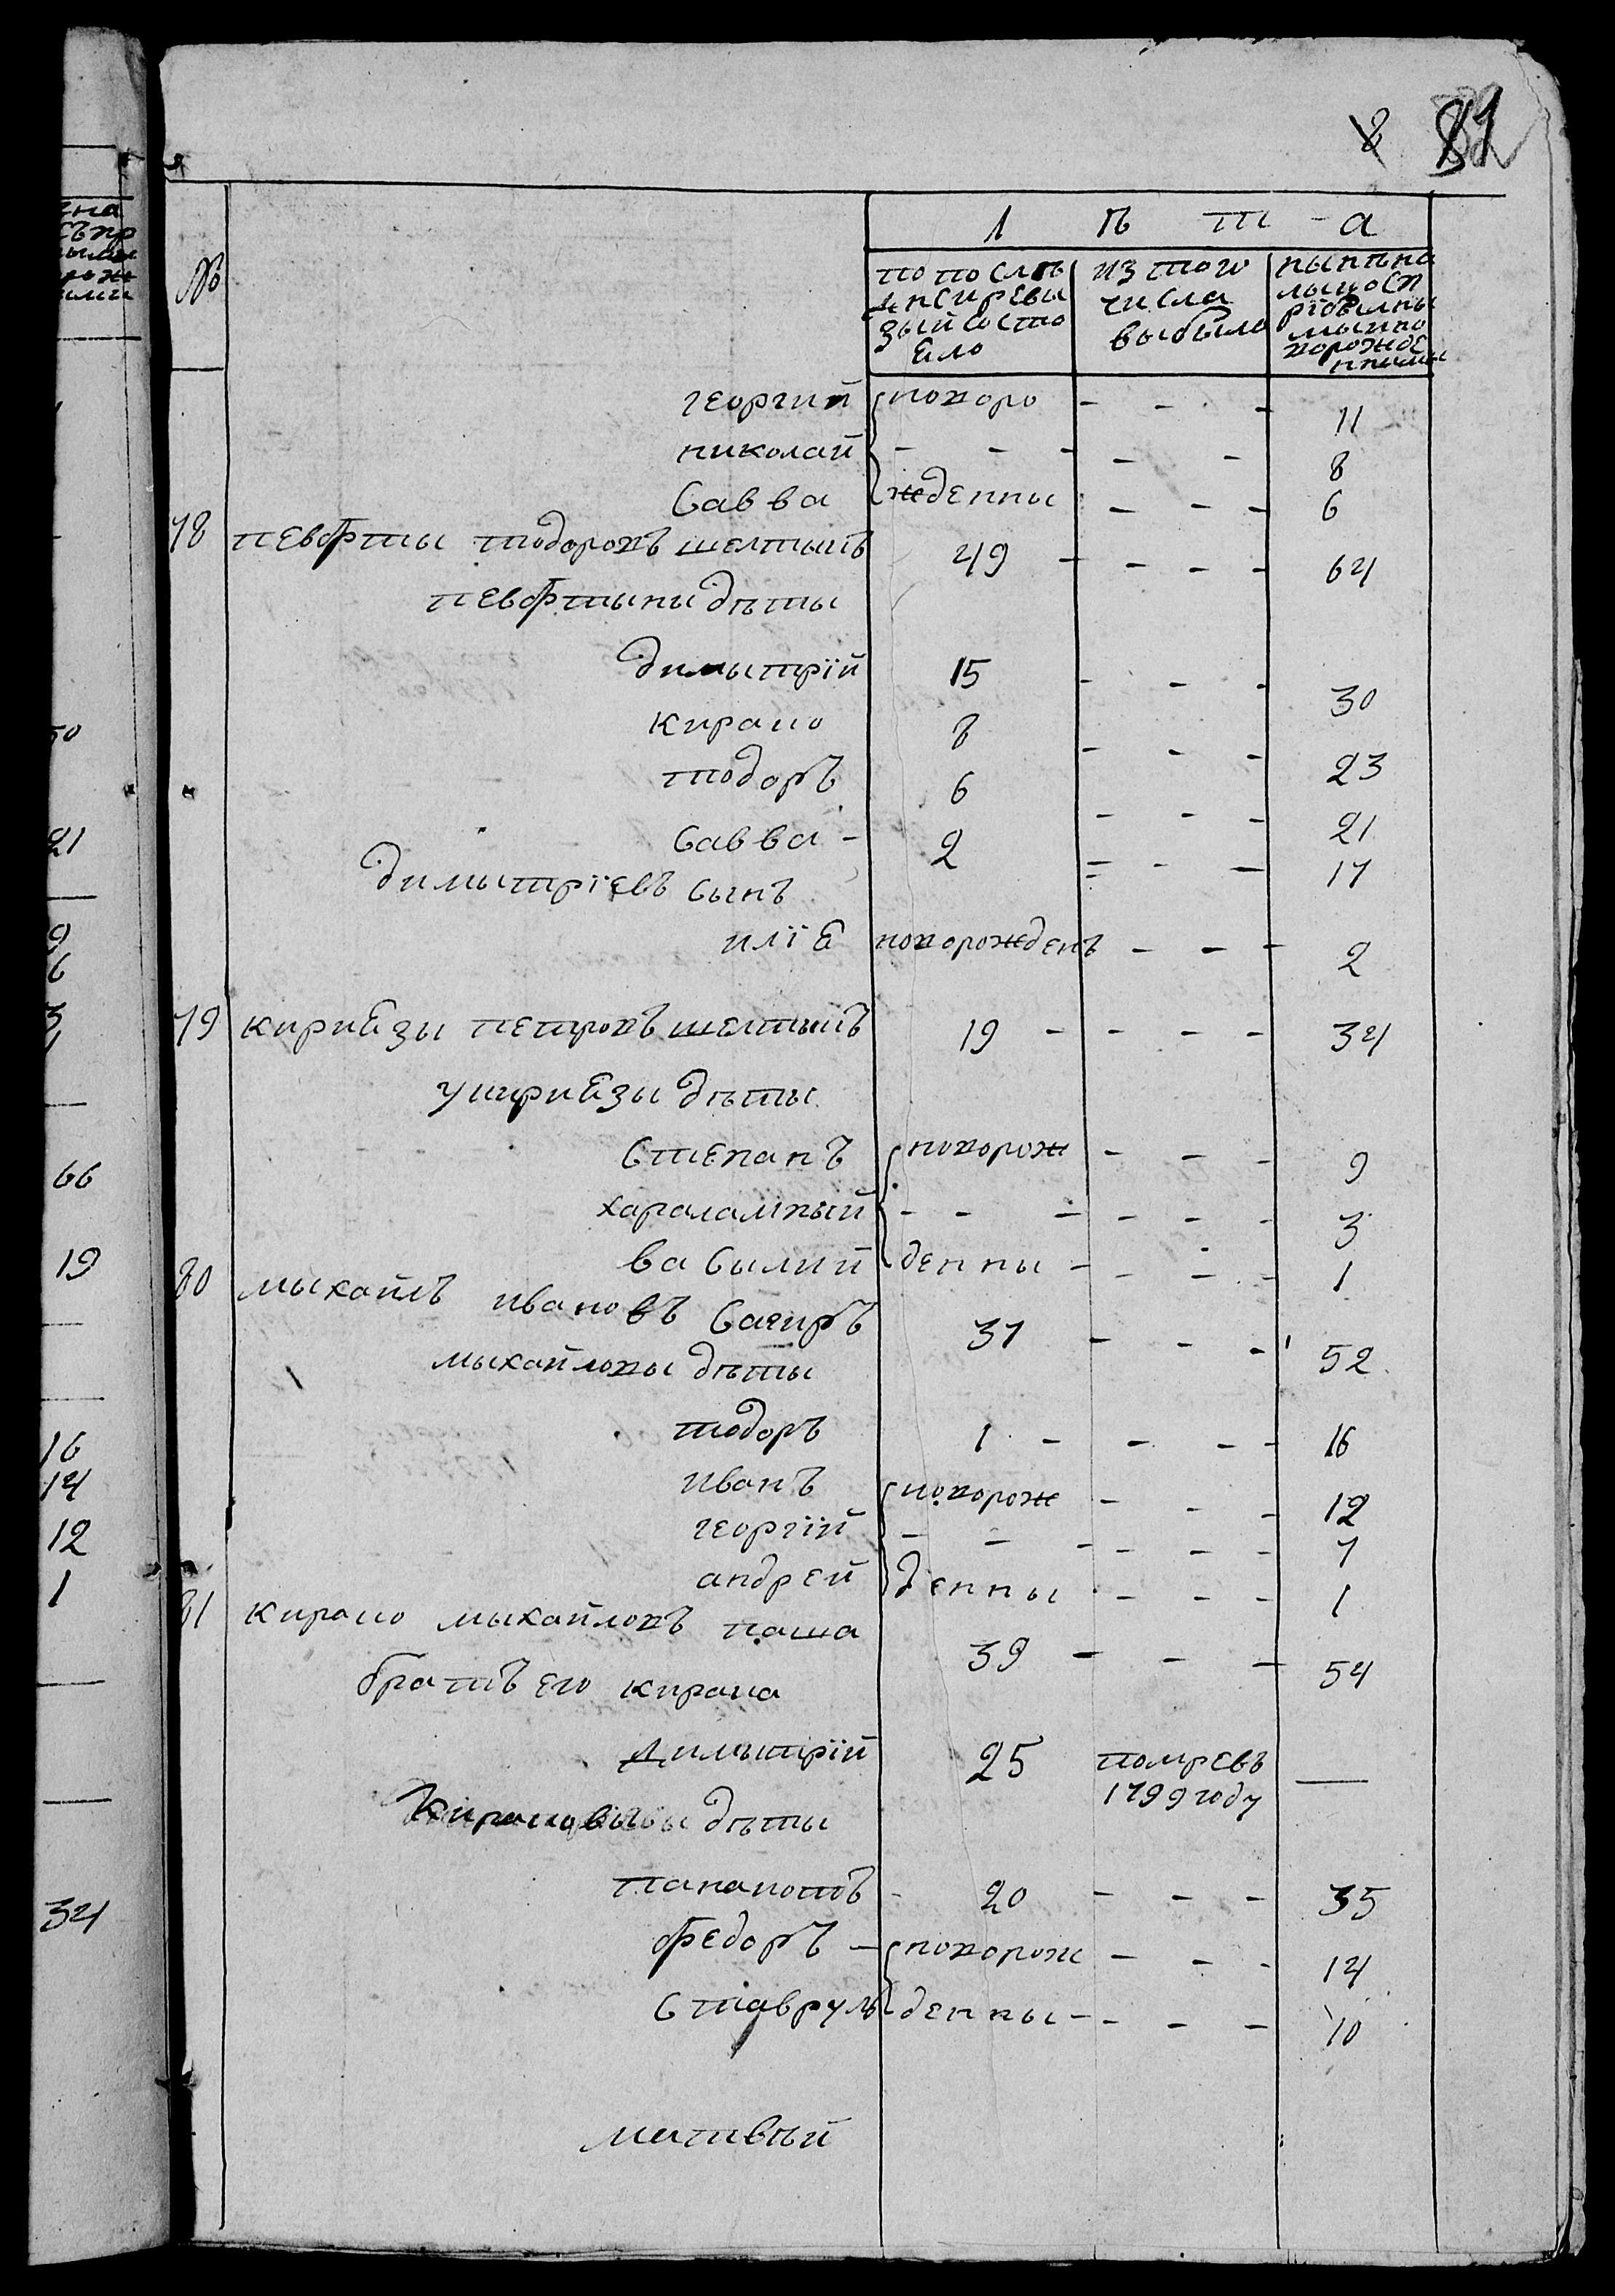 8 82
№
Л ѣ т а
по послѣ
днеи ревы
зыи состо
яло
из того
числа
выбыло
нынѣ на
лыцо сп
рїбылны
мы и но
ворожде
нными
георгий новоро - - - 11
николай - - - - - 8
Савва жденны - - - 6
78 певфты тодоровъ шелтыпъ 49 - - - - 64
певфтыны дѣты
дымытрїй 15 - - - 30
кирако 8 - - - 23
тодоръ 6 - - - 21
Савва - 2 - - - 17
димытрїевъ сынъ
илїя новорожденъ - - - 2
79 кириязы петровъ шелтыпъ 19 - - - - 34
у кириязы дѣты
Степанъ новорож - - - 9
харалампый - - - - - - 3
васылий денны - - - - 1
80 мыхайлъ ивановъ Сагиръ 37 - - - 52
мыхайловы дѣты
тодоръ 1 - - - - 16
иванъ новорож - - - 12
георгїй - - - - - - 7
андрей денны - - - 1
81 кирако мыхайловъ паша 39 - - - 54
братъ его кирака
Димытрїй 25 помревъ —
1799 году
Кираковы дѣты
Панаиотъ - 20 - - - 35
федоръ - новорож - - - 14
Ставруль денны - - - - 10
матвѣй